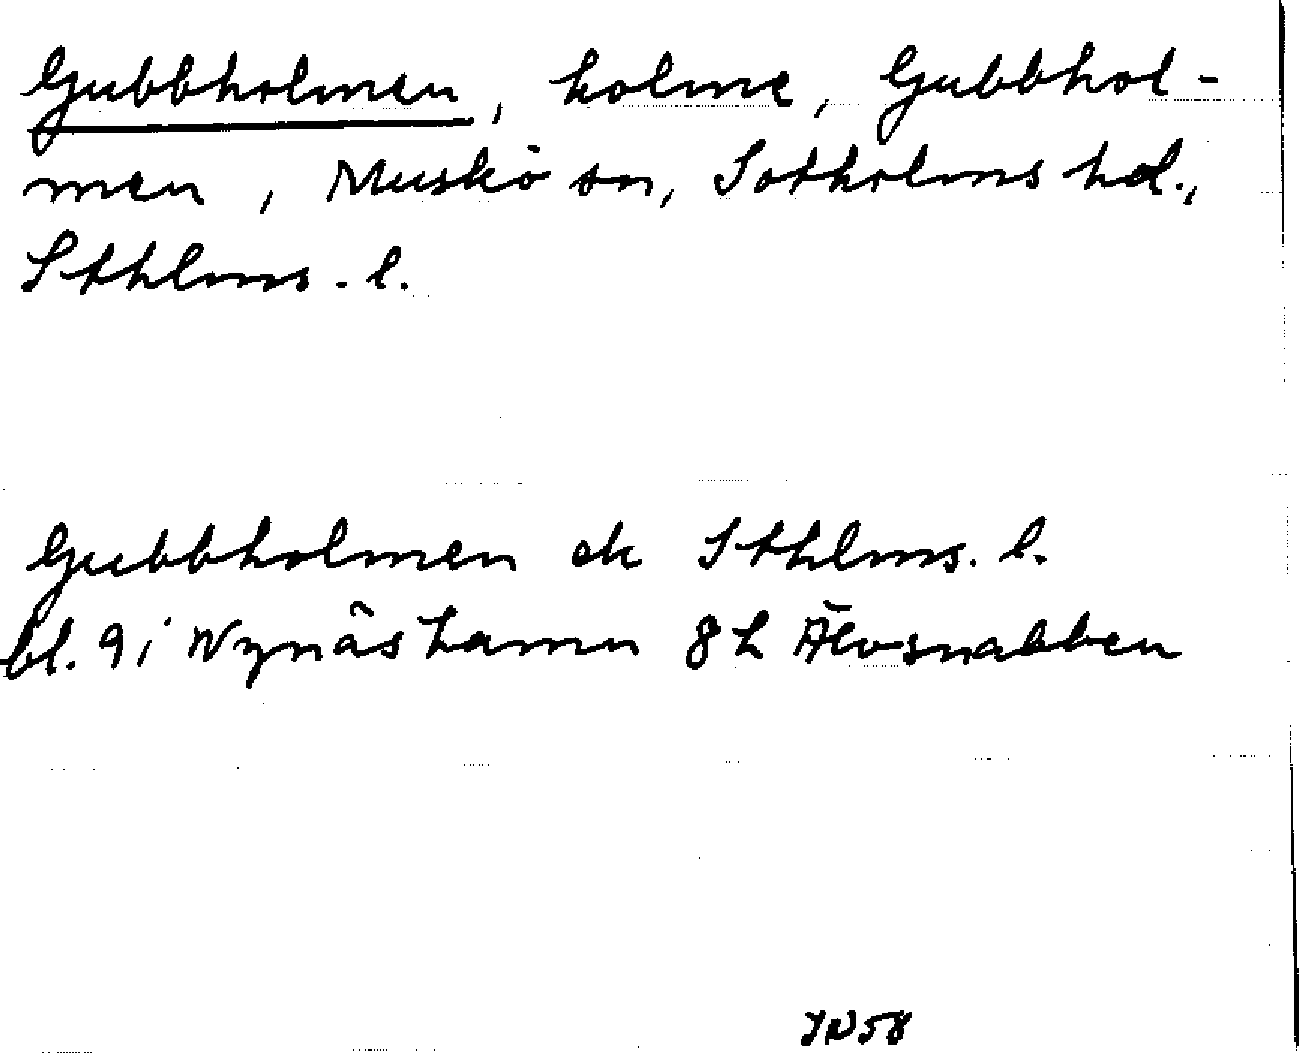 Gubbholmen, holme, Gubbhol-
men, Muskö sn, Sotholms hd.,
Sthlms. l.
Gubbholmen ek Sthlms. l.
bl. 9 i Nynäshamn 8h Älvsnabben
JN58